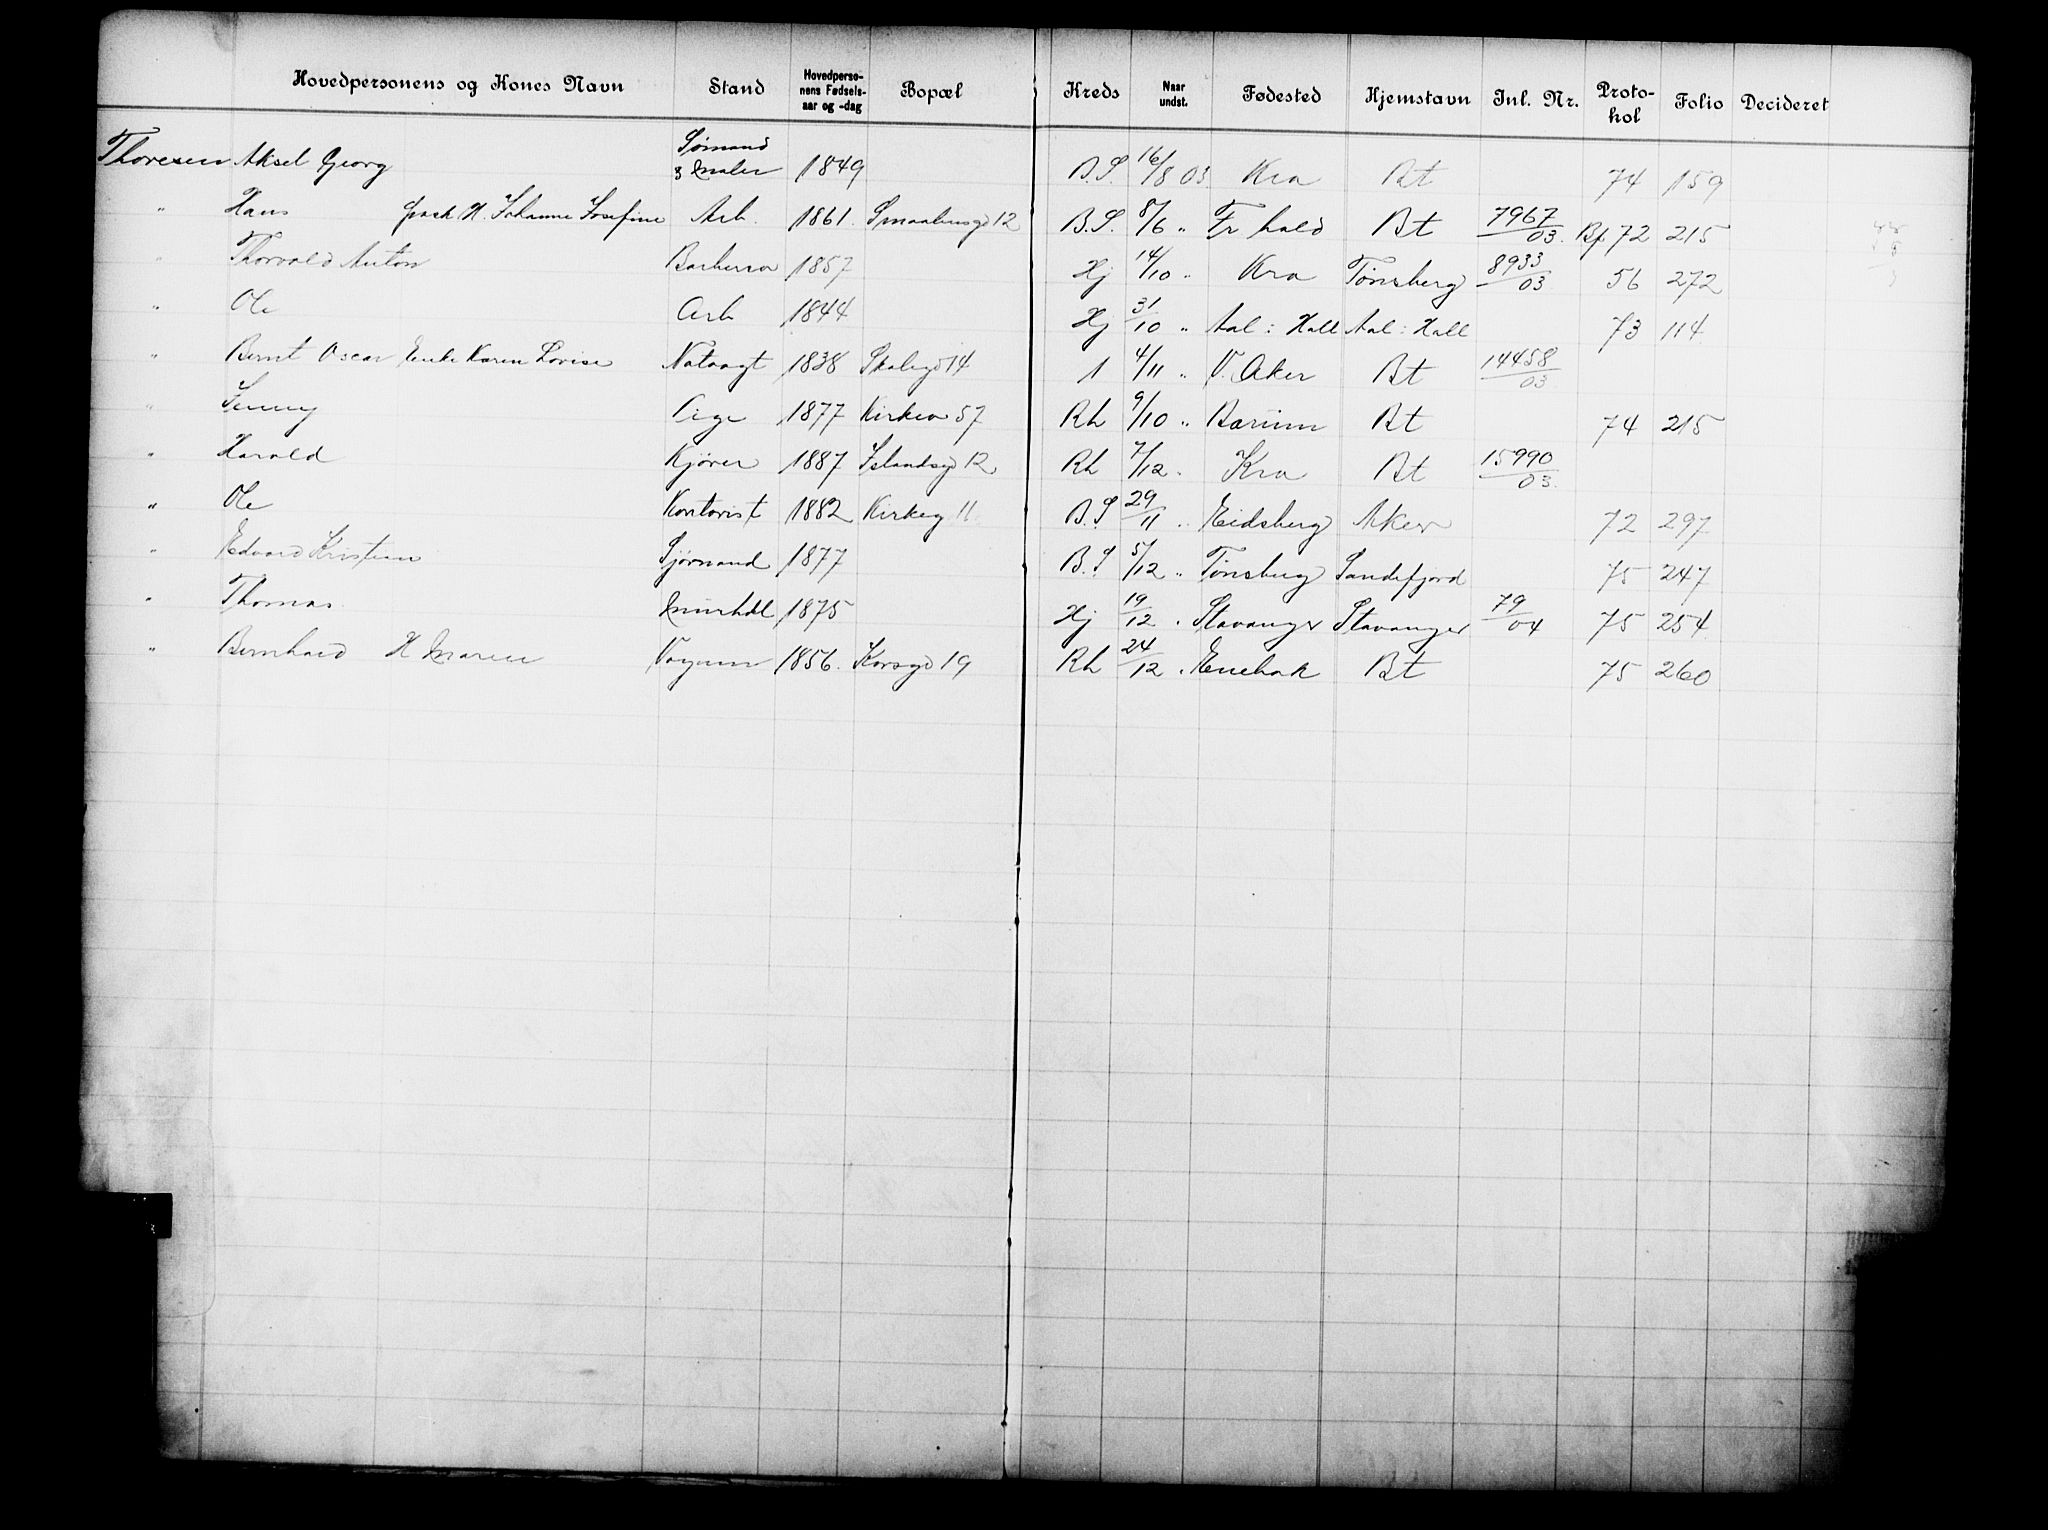 Hovedpersonens og Kones Navn Stand Hovedperso-nens Fødsels-aar og -dag Bopæl Kreds Naar undst. Fødested Hjemstavn Inl. Nr. Proto-kol Folio Decideret
Thoresen Aksel Georg Sømand & Maler 1849 B.S. 16/8 03. Kra Bt 74 159
" Hans H. Johanne Josefine Arb. 1861. Smaalensgd 12 B.S. 8/6 " Fr hald Bt 7967/03. Bf 72 215
" Thorvald Anton 1857 Hj 14/10 " Kra Tønsberg 8933/03 56 272
" Ole Arb 1844 Hj 31/10 " Aal : Hall Aal : Hall 73 114
" Bernt Oscar Enke Karen Lovise Natvagt 1838 14 1 4/11 " V. Aker Bt 14458/03
" Jenny Pige 1877 Kirkev 57 Rh 9/10 " Bærum Bt 74 215
" Harald Kjører 1887 Islandsgd 12 Rh 7/12 " Kra Bt 15990/03.
" Ole Kontorist 1882 Kirkeg 11 B.S 29/11 " Eidsberg Aker 72 297
" Edvard Kristian Sjømand 1877 B.S 5/12 " Tønsberg Sandefjord 75 247
" Thomas Murhdl 1875 Hj 19/12 " Stavanger Stavanger 79/04 75 254
" Bernhard H Maren Vognm 1856. Korsgd 19 Rh 24/12 " Enebak Bt 75 260